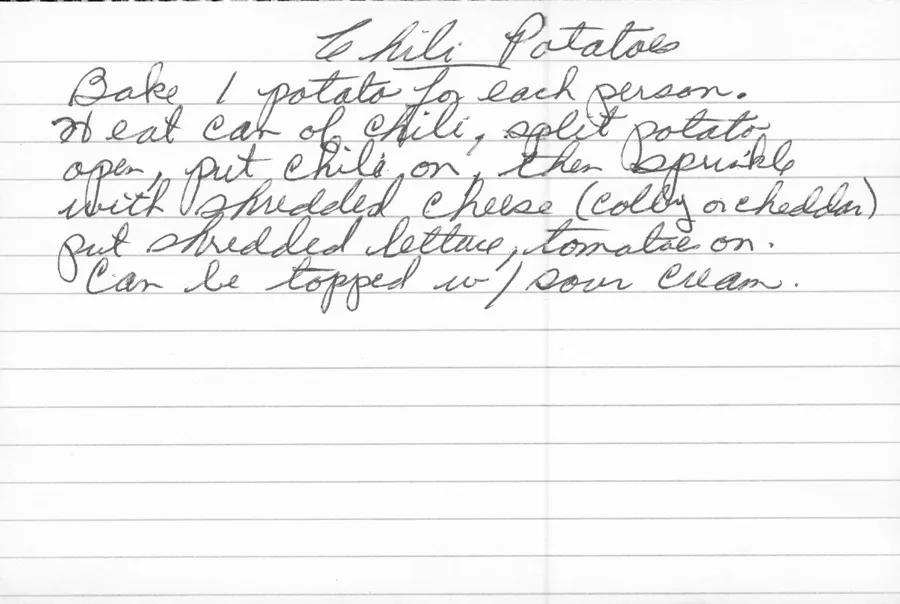 Chili Potatoes
Bake 1 potato for each person.
Heat can of chili, split potato
open, put chili on, then sprinkle
with shredded cheese (colby or cheddar)
put shredded lettuce, tomatoe on.
Can be topped w/ sour cream.